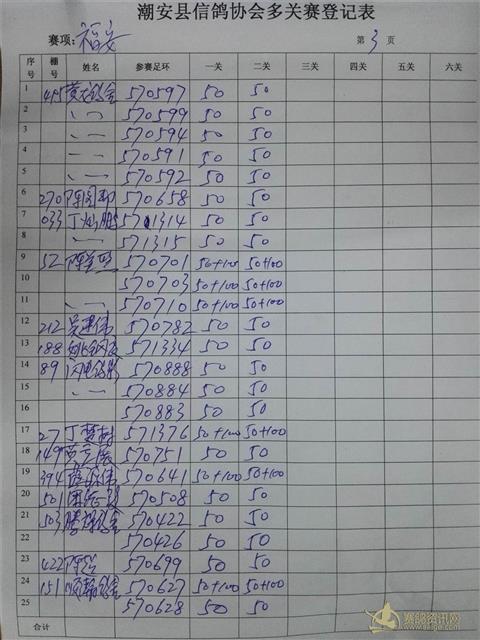 潮安县信鸽协会多关赛登记表
赛项: 福安 第 3 页
序号 棚号 姓名 参赛足环 一关 二关 三关 四关 五关 六关
1 570597 50 50
2 570599 50 50
3 570594 50 50
4 570591 50 50
5 570592 50 50
6 270 570658 50 50
7 033 571314 50 50
8 571315 50 50
9 52 570701 50+100 50+100
10 570703 50+100 50+100
11 570710 50+100 50+100
12 212 570782 50 50
13 188 571334 50 50
14 89 570888 50 50
15 570884 50 50
16 570883 50 50
17 27 571376 50+100 50+100
18 149 570751 50 50
19 394 570641 50+100 50+100
20 501 570508 50 50
21 503 570422 50 50
22 570426 50 50
23 422 570699 50 50
24 151 570627 50+100 50+100
25 570628 50 50
合计
赛鸽资讯网
www.saige.com